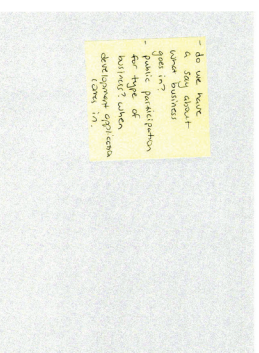 - do we have
a say about
what business
goes in?
- public participation
for type of
business? when
development application
comes in.